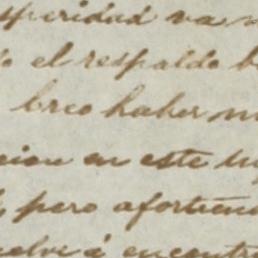 speridad va
el respaldo
creo haber
cion en este
pero afortun
uelve á encontra